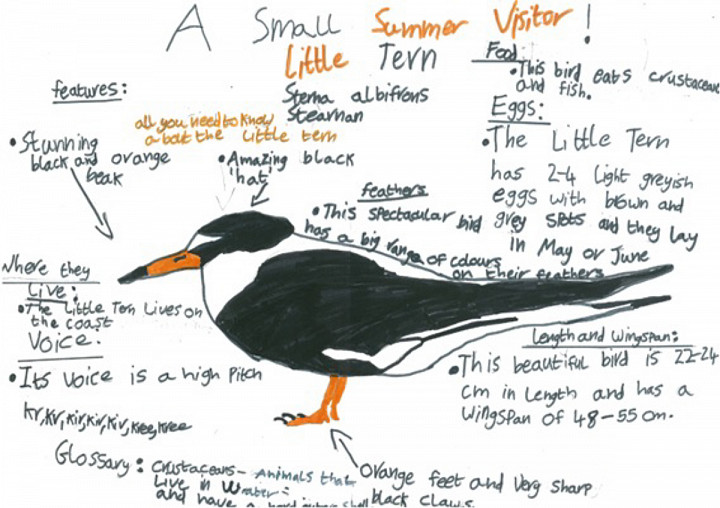 A Small Summer Visitor!
Little Tern
Sterna albifrons
Stearman
all you need to know
about the little tern
features:
• Stunning
black and orange
beak
• Amazing black
'hat'
feathers
• This spectacular bird
has a big range of colours
on their feathers
Food:
• This bird eats crustaceans
and fish.
Eggs:
• The Little Tern
has 2-4 light greyish
eggs with brown and
grey spots and they lay
in May or June
Where they
Live:
• The Little Tern Lives on
the coast
Voice:
• Its voice is a high pitch
kr, kv, kir, kir, kiv, kree, kree
Length and Wingspan:
• This beautiful bird is 22-24
cm in Length and has a
wingspan of 48-55 cm.
Orange feet and very sharp
black claws
Glossary: crustaceans- Animals that
Live in water
and have a hard outer shell